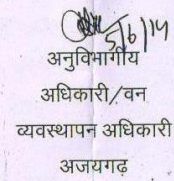 5/6/14
अनुविभागीय
अधिकारी/वन
व्यवस्थापन अधिकारी
अजयगढ़